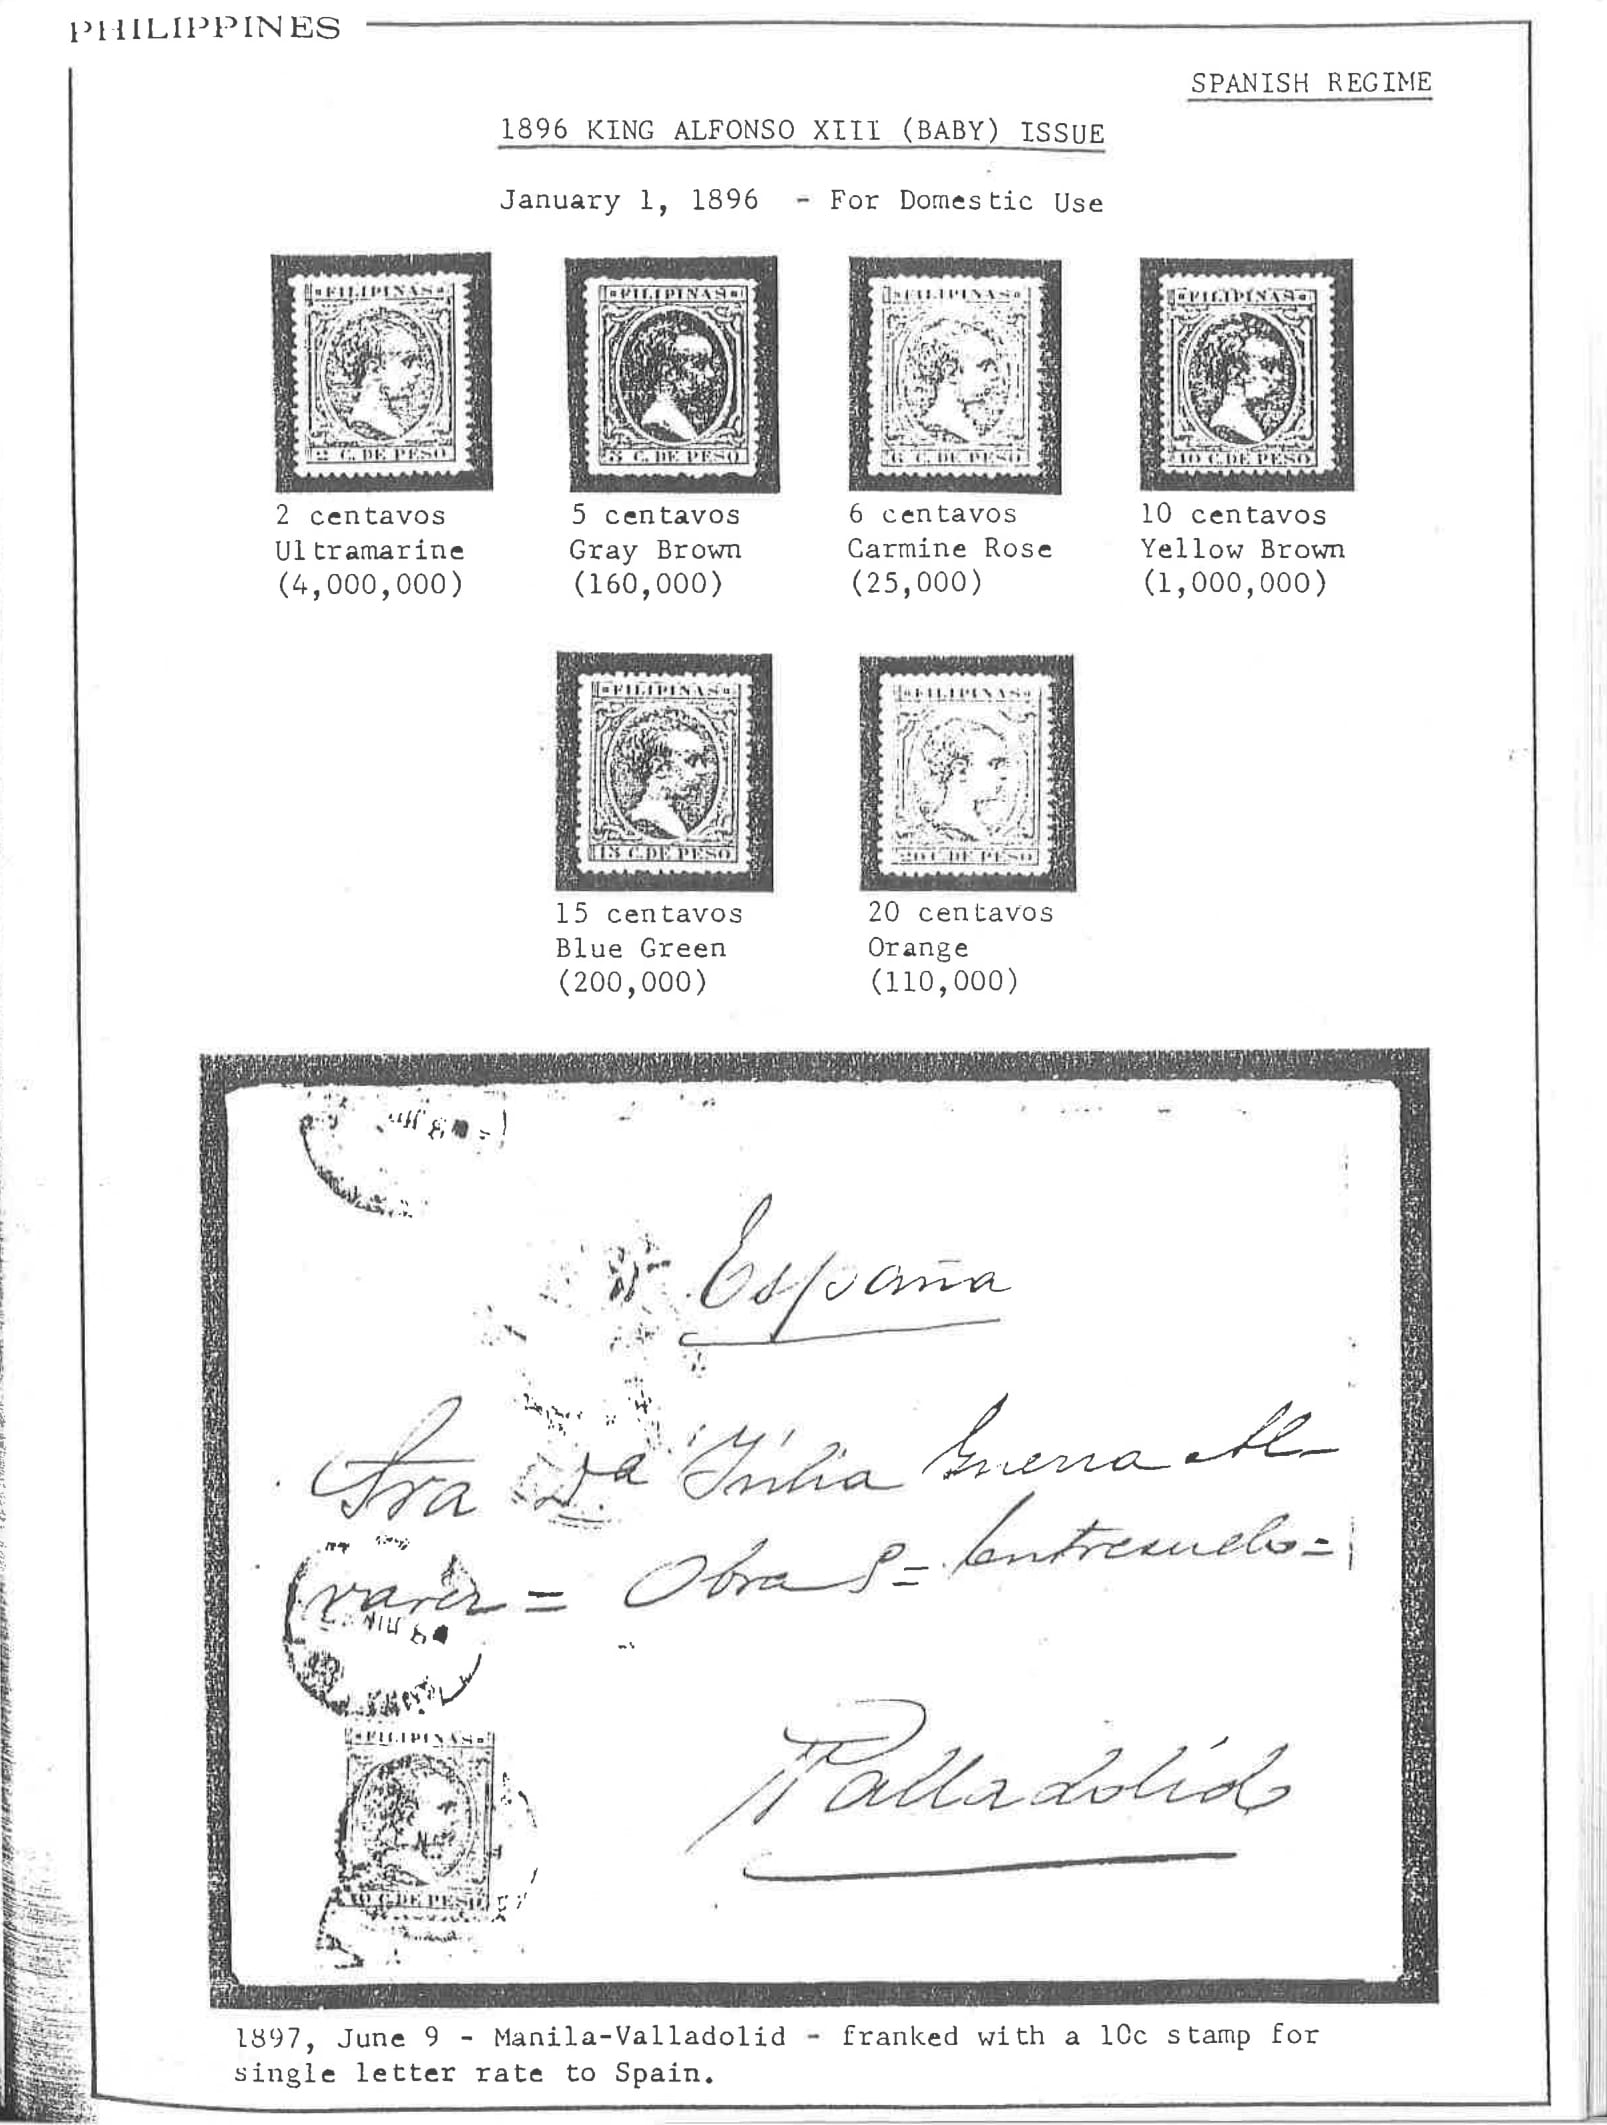 PHILIPPINES
SPANISH REGIME
1896 KING ALFONSO XIII (BABY) ISSUE
January 1, 1896 - For Domestic Use
*FILIPINAS*
2 C. DE PESO
*FILIPINAS*
5 C. DE PESO
*FILIPINAS*
6 C. DE PESO
*FILIPINAS*
10 C. DE PESO
2 centavos
Ultramarine
(4,000,000)
5 centavos
Gray Brown
(160,000)
6 centavos
Carmine Rose
(25,000)
10 centavos
Yellow Brown
(1,000,000)
*FILIPINAS*
15 C. DE PESO
*FILIPINAS*
20 C. DE PESO
15 centavos
Blue Green
(200,000)
20 centavos
Orange
(110,000)
España
Sra Da Júlia Guerra Al-
varez = Obra 8 = Entresuelo =
Valladolid
*FILIPINAS*
10 C. DE PESO
1897, June 9 - Manila-Valladolid - franked with a 10c stamp for
single letter rate to Spain.